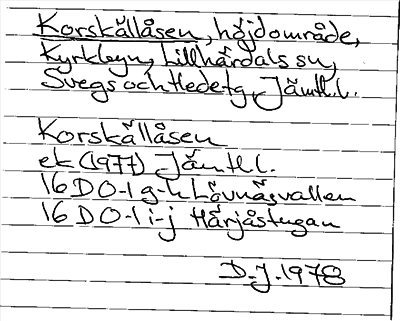 Korskållåsen, höjdområde,
Kyrkbyn, Lillhärdals sn,
Svegs och Hede tg, Jämtl.l.
Korskållåsen
ek (1977) Jämtl l.
16 D 0-1 g-h Lövnäsvallen
16 D 0-1 i-j Härjåstugan
D.J. 1978